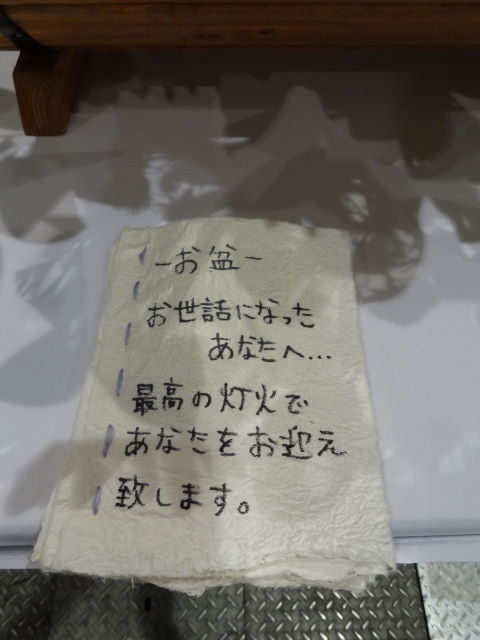 –お盆–
お世話になった
あなたへ…
最高の灯火で
あなたをお迎え
致します。